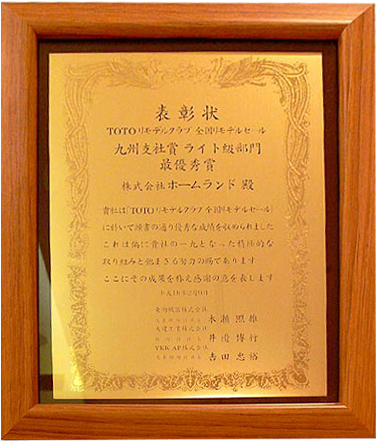 表彰状
TOTOリモデルクラブ 全国リモデルセール
九州支社賞 ライト級部門
最優秀賞
株式会社ホームランド 殿
貴社は「TOTOリモデルクラブ全国リモデルセール」
に於いて頭書の通り優秀な成績を収められました
これは偏に貴社の一丸となった積極的な
取り組みと他まざる努力の賜であります
ここにその成果を称え感謝の意を表します
平成18年2月9日
東陶機器株式会社
木瀬 照雄
大建工業株式会社
井邊 博行
YKK AP株式会社
吉田 忠裕